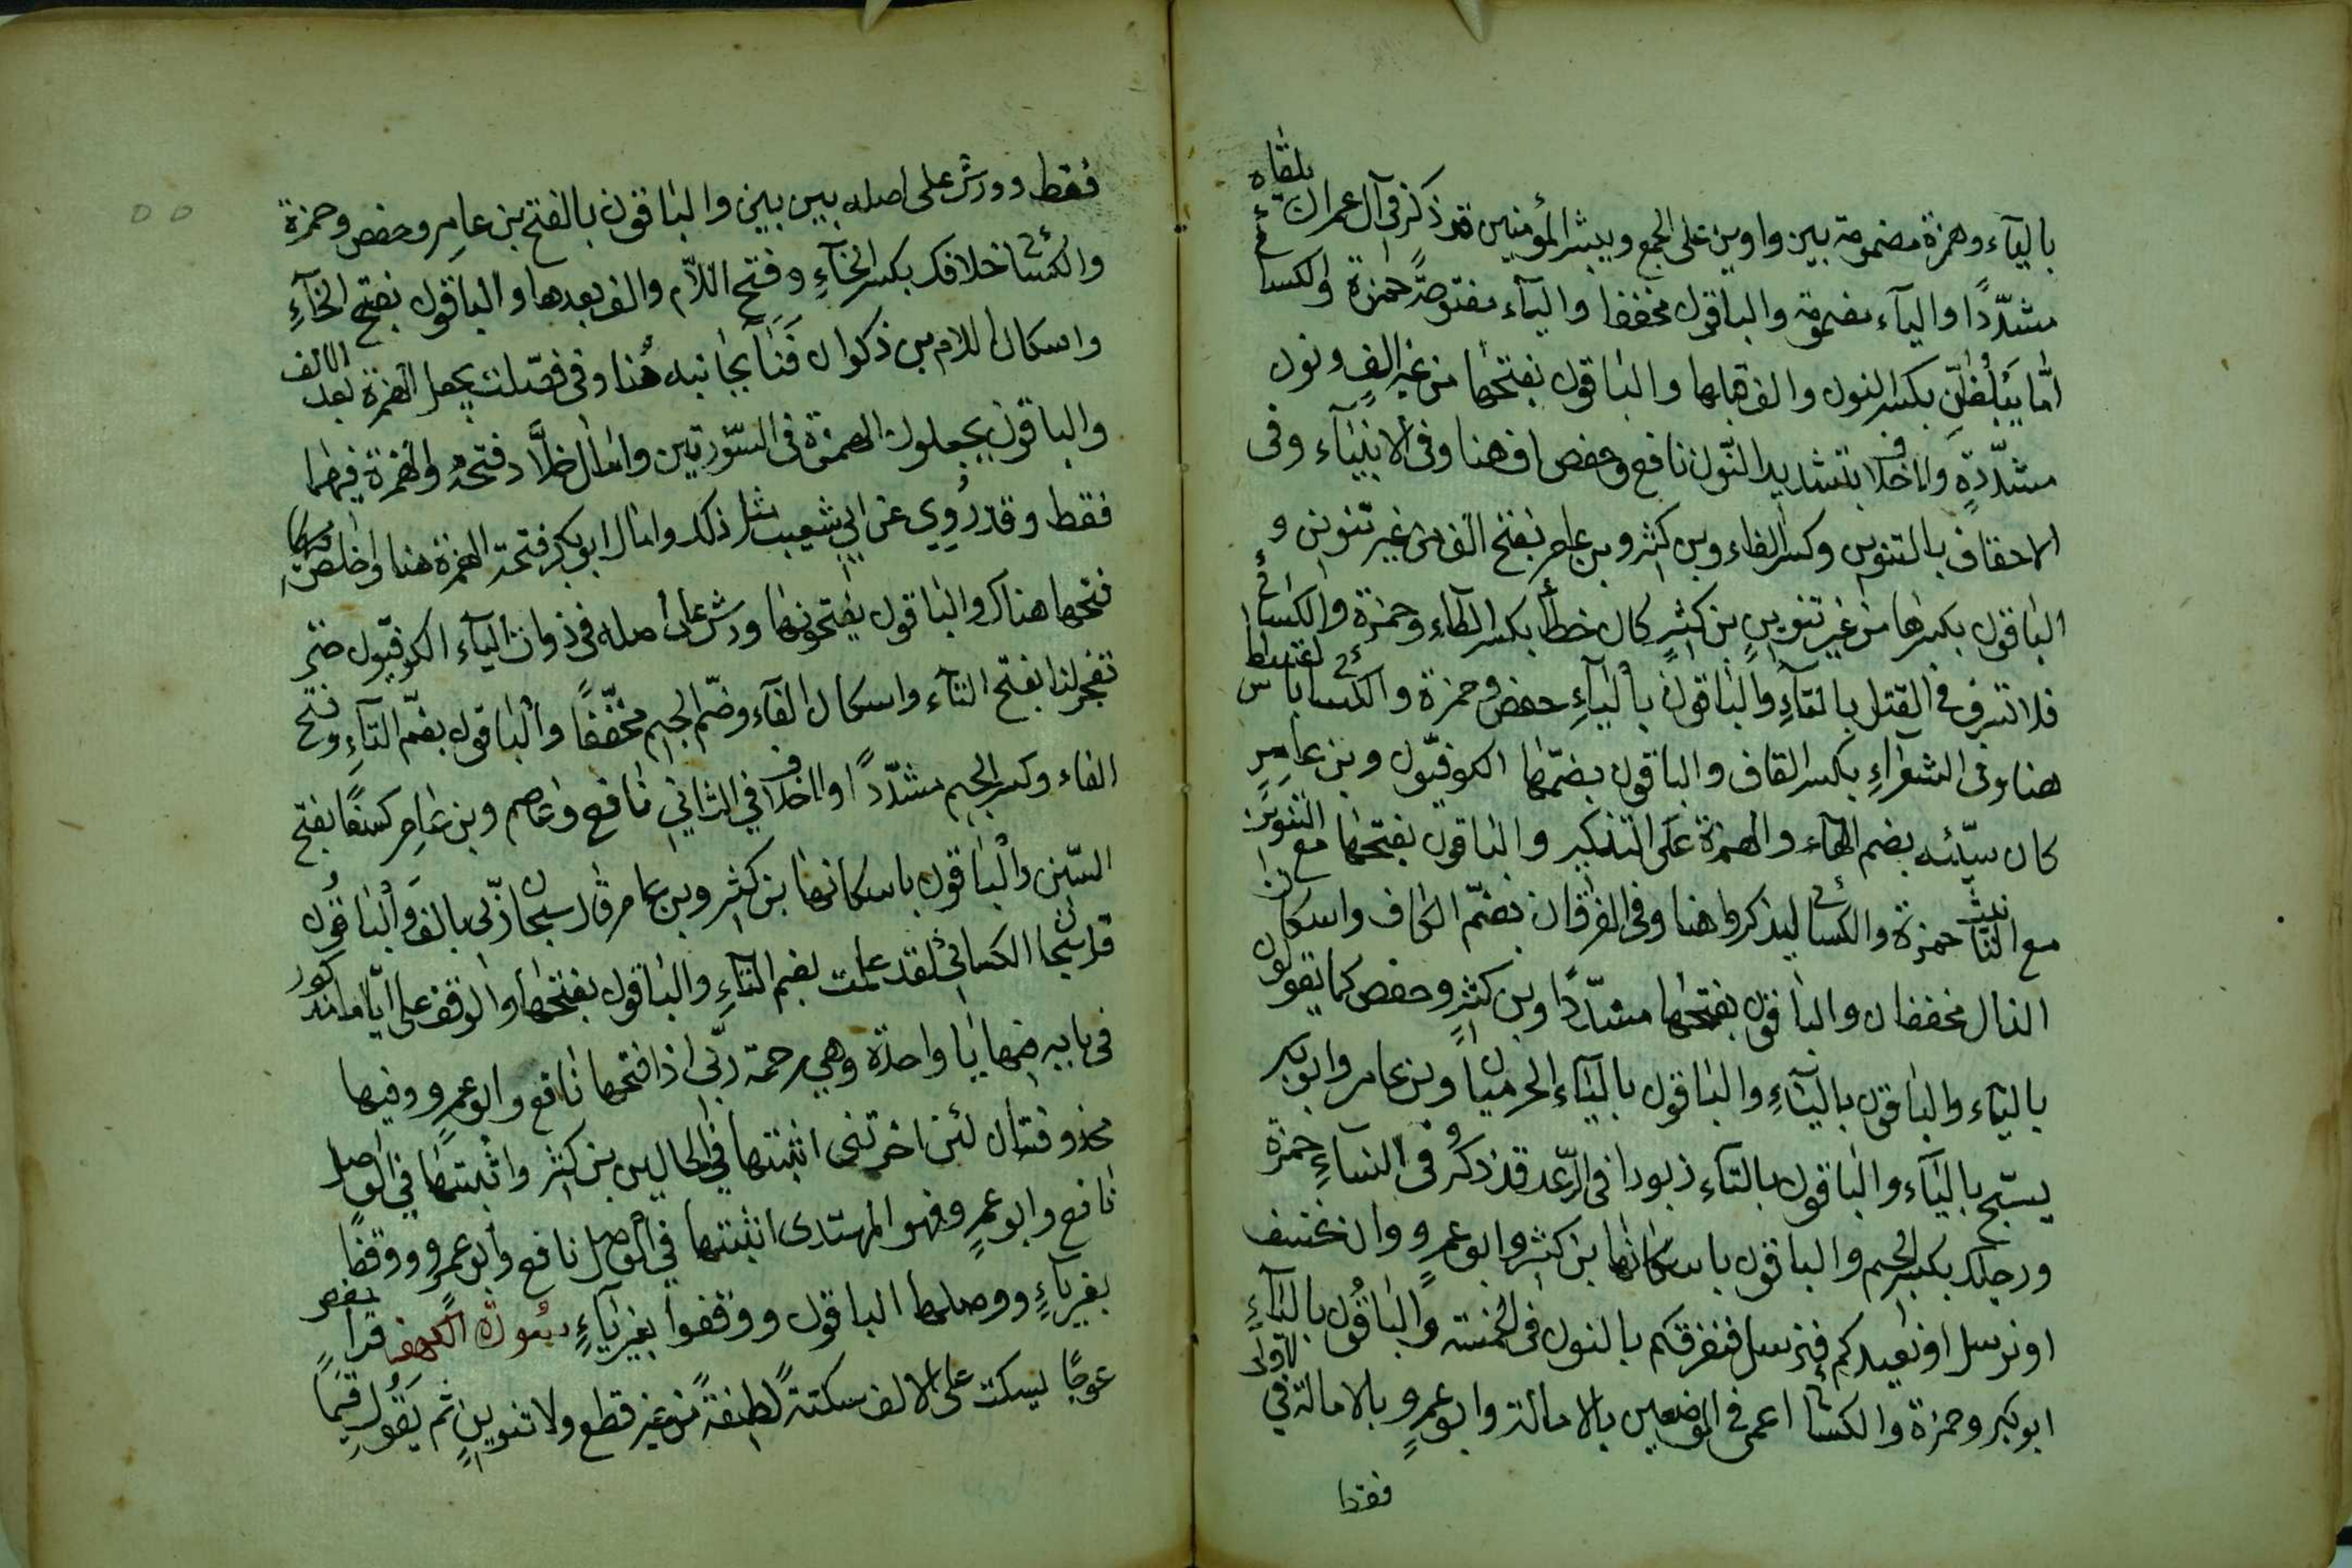 بالياء وهمزة مضمومة بين واوين على الجمع ويبشر المؤمنين قد ذكر في آل عمران يلقاه
مشدّدًا والياء مضمومة والباقون مخففا والياء مفتوحة حمزة والكسائي
امّا يبلغانّ بكسر النون والف قبلها والباقون بفتحها من غير الفٍ ونون
مشدّدةٍ ولا خلاف بتشديد النّون نافع وحفص اف هنا وفي الانبياء وفي
الاحقاف بالتنوين وكسر الفاء وبن كثير وبن عامر بفتح الف من غير تنوين و
الباقون بكسرها من غير تنوينٍ بن كثيرٍ كان خطأ بكسر الطاء وحمزة والكسائي
فلا تسرف في القتل بالتاءِ والباقون بالياءِ حفص وحمزة والكسائي بالقسطاس
هنا وفي الشعراءِ بكسر القاف والباقون بضمّها الكوفيّون وبن عامرٍ
كان سيّئه بضم الهاء والهمزة على التذكير والباقون بفتحها مع التنوين
مع التأنيث حمزة والكسائي ليذكروا هنا وفي الفرقان بضمّ الكاف واسكان
الذال مخففان والباقون بفتحها مشدّدًا وبن كثيرٍ وحفص كما يقولون
بالياء والباقون بالتاءِ والباقون بالياء الحرميان وبن عامر وابو بكر
يسبّح بالياء والباقون بالتاءِ زبورا في الرّعد قد ذكر في النساءِ حمزة
ورجلك بكسر الجيم والباقون باسكانها بن كثير وابو عمرٍو وان نخسف
او نرسل او نعيدكم فنرسل فنغرقكم بالنون في الخمسة والباقُون بالياءِ
ابو بكر وحمزة والكسائي اعمى في الموضعين بالامالة وابو عمرٍو بالامالة في الاولى
فقط
فقط وورش على اصله بين بين والباقون بالفتح بن عامِر وحفص وحمزة
والكسائي خلافك بكسر الخاءِ وفتح اللّام والف بعدها والباقون بفتح الخاءِ
واسكان اللام بن ذكوان وَنَآ بجانبه هُنا وفي فصّلت يجعل الهمزة بعد الالف
والباقون يجعلون الهمزة في السّورتين وامال خلّاد فتحة والهمزة فيهما
فقط وقد رُوِي عن ابي شعيب مثل ذلك وامال ابو بكر فتحة الهمزة هنا واخلص
فتحها هناك والباقون يفتحونها ورش على اصله في ذوات الياء الكوفيّون حتى
تفجر لنا بفتح التاء واسكان الفاء وضمّ الجيم مخفّفًا والباقون بضمّ التاءِ وفتح
الفاء وكسر الجيم مشدّدًا ولا خلاف في الثاني نافع وعاصم وبن عامِر كسفًا بفتح
السّين والباقون باسكانها بن كثير وبن عامر قال سبحان ربّي بالف والباقُون
قل سبحان الكسائي لقد علمت بضم التاءِ والباقون بفتحها والوقف على ايّاما مذكور
في بابه فيها يا واحدة وهي رحمة ربّي اذا فتحها نافع وابو عمرٍو وفيها
محذوفتان لئن اخرتنى اثبتها في الحالين بن كثير واثبتها في الوصل
نافع وابو عمرٍو فهو المهتدى اثبتها في الوصل نافع وابو عمرٍو ووقفا
بغير ياءٍ ووصلها الباقون ووقفوا بغير ياءٍ سورة الكهف قرا حفص
عوجًا يسكت على الالف سكتةً لطيفةً من غير قطع ولا تنوينٍ ثم يقُول قيّمًا